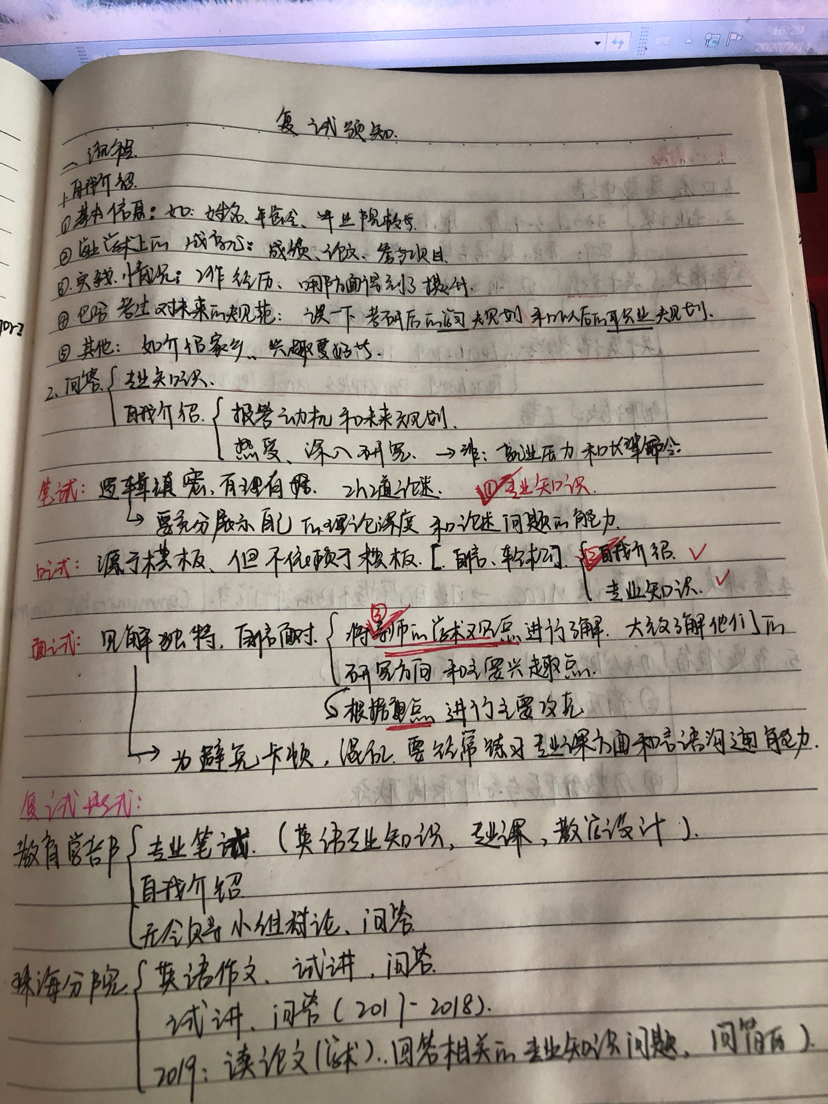 复试须知.
一、流程.
1.自我介绍.
①基本信息：如：姓名、年龄、毕业院校等.
②学术上的成就：成绩、论文、参与项目.
③实践情况：工作经历、哪方面得到了提升.
④包括考生对未来的规范：谈一下考研后的学习规划和以后的职业规划.
⑤其他：如介绍家乡、兴趣爱好等.
2.问答 专业知识.
自我介绍. 报考动机和未来规划.
热爱、深入研究. →非：就业压力和父母命令.
笔试：逻辑缜密，有理有据. 2h2道论述. ①专业知识.
↳要充分展示自己的理论深度和论述问题的能力.
口试：源于模板、但不依赖于模板.[自信、轻松] ②自我介绍. ✓
专业知识. ✓
面试：见解独特，自信面对. ③ 将导师的学术观点进行了解. 大致了解他们的
研究方向和主要兴趣点.
根据重点进行主要攻克
→为避免卡顿，混乱.要经常练习专业课方面和言语沟通能力.
复试形式：
教育学部 专业笔试.（英语专业知识，专业课，教学设计）.
自我介绍
无领导小组讨论、问答
珠海分院 英语作文、试讲、问答.
试讲、问答（2017-2018).
2019：读论文(学术)..回答相关的专业知识问题、问简历）.